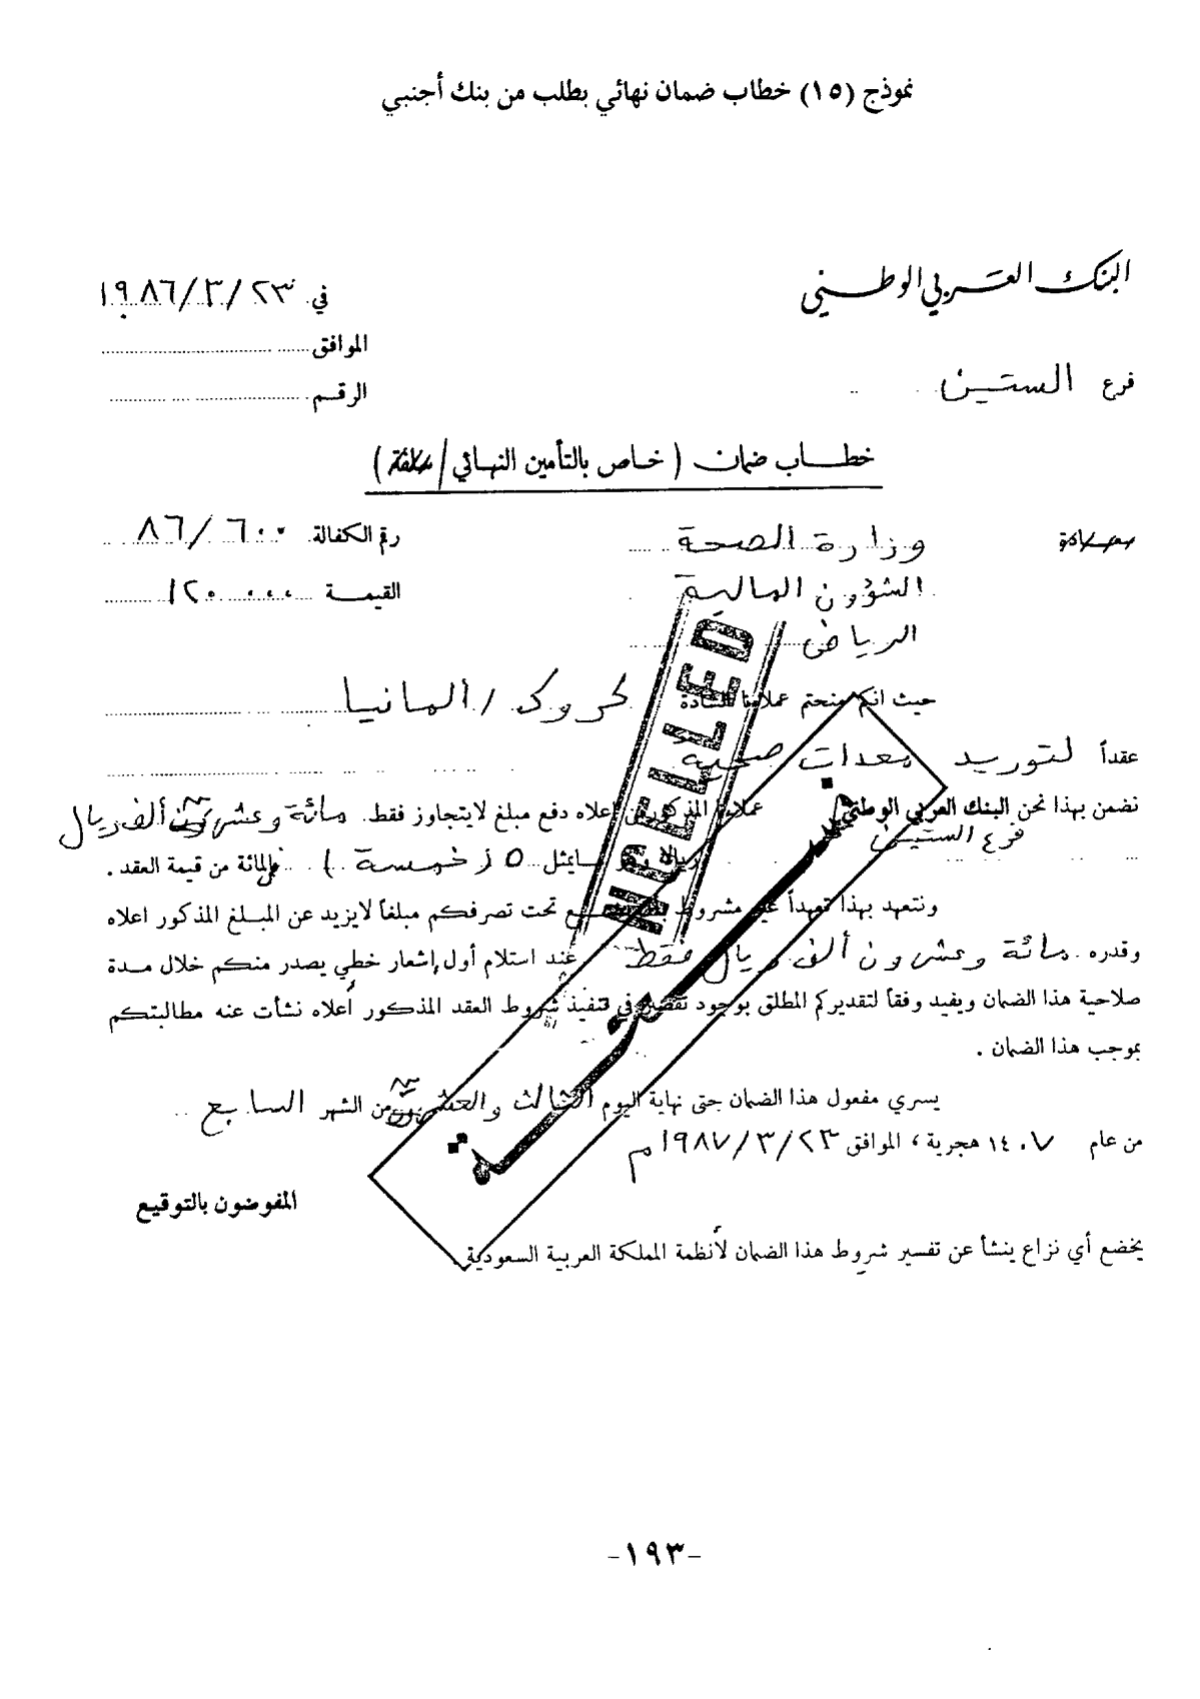 نموذج (١٥) خطاب ضمان نهائي بطلب من بنك أجنبي
البنك العربي الوطني
في ١٩٨٦/٣/٢٣
الموافق
فرع الستين
الرقم
خطاب ضمان ( خاص بالتأمين النهائي /
وزارة الصحة
رقم الكفالة ٨٦/٦٠٠
الشؤون المالية
القيمة ١٢٠,٠٠٠
الرياض
حيث انكم منحتم عملائنا السادة / المانيا
عقداً لتوريد معدات صحية
نضمن بهذا نحن البنك العربي الوطني عملاءنا المذكورين اعلاه دفع مبلغ لايتجاوز فقط. مائة وعشرون ألف ريال
فرع الستين
مايمثل ٥ ( خمسة ) بالمائة من قيمة العقد .
ونتعهد بهذا تعهداً غير مشروط تحت تصرفكم مبلغاً لايزيد عن المبلغ المذكور اعلاه
وقدره مائة وعشرون ألف ريال فقط عند استلام أول إشعار خطي يصدر منكم خلال مدة
صلاحية هذا الضمان ويفيد وفقاً لتقديركم المطلق بوجود تقصير في تنفيذ شروط العقد المذكور أعلاه نشأت عنه مطالبتكم
بموجب هذا الضمان .
يسري مفعول هذا الضمان حتى نهاية اليوم الثالث والعشرون من الشهر السابع
من عام ١٤٠٧ هجرية ، الموافق ١٩٨٧/٣/٢٣ م
المفوضون بالتوقيع
يخضع أي نزاع ينشأ عن تفسير شروط هذا الضمان لأنظمة المملكة العربية السعودية.
-١٩٣-